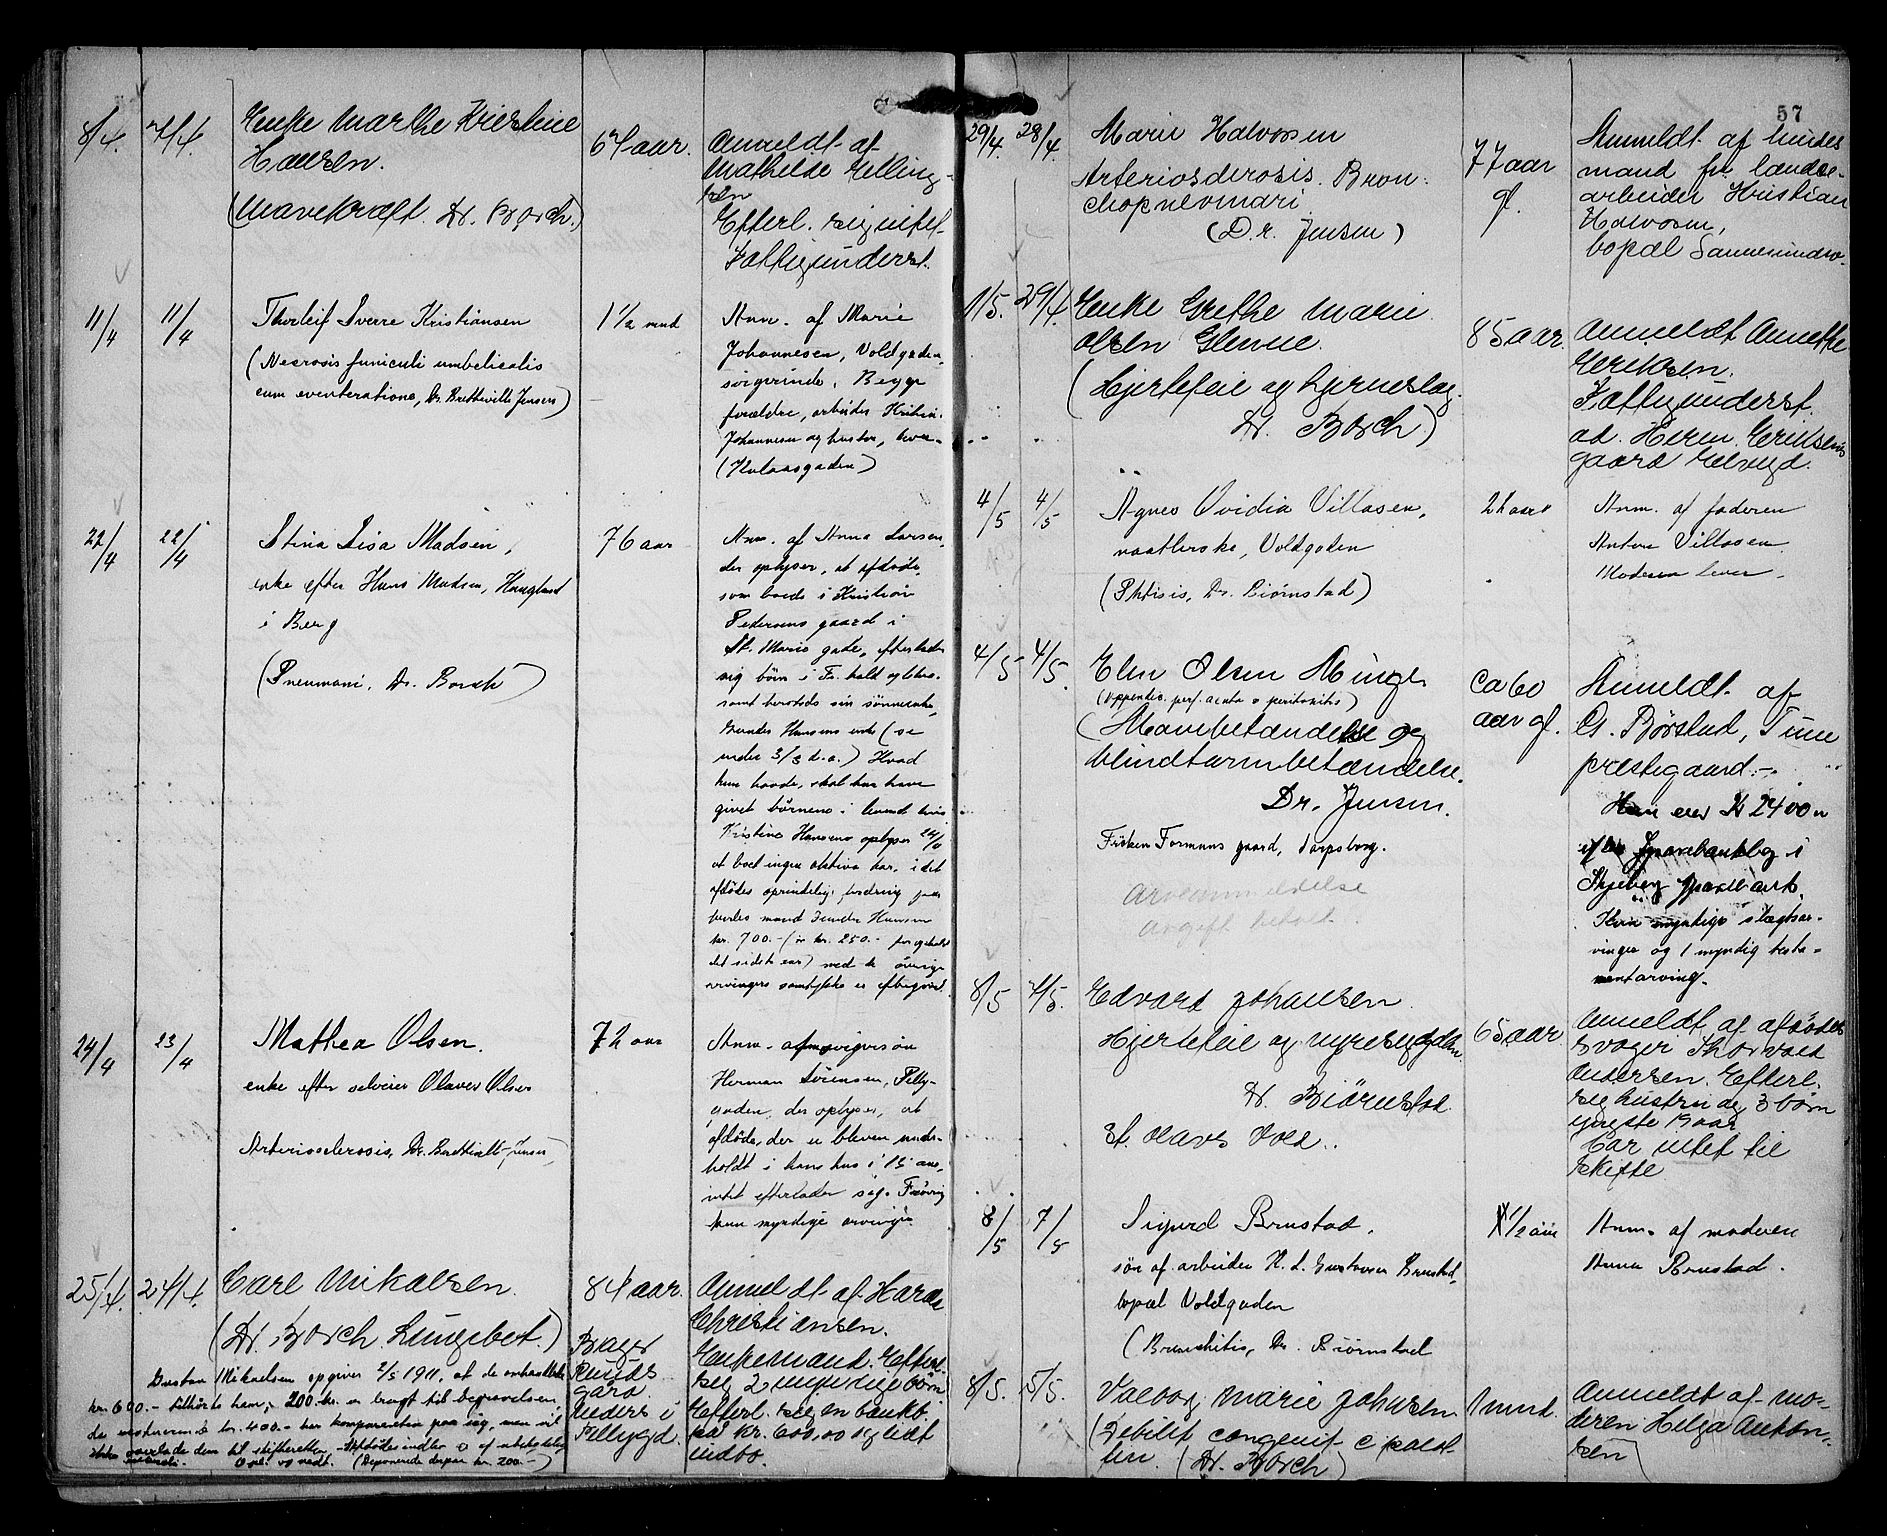 8/4. 7/4. Enke Marthe Kristine
Hansen.
(Mavekræft. Dr. Borch.)
67 aar.
Anmeldt af
Mathilde Jelling-
sen
Efterl. sig intet
Fattigunderst.
11/4 11/4 Thorleif Sverre Kristiansen
(Necrosis funiculi umbelicalis
cum eventeratione, Dr. Bretteville Jensen)
1 1/2 mnd
Anm. af Marie
Johannesen, Voldgaden,
sörgerinde. Begge
forældre, arbeider Kristian
Johannesen og hustru, lever
(Kulaasgaden)
22/4 22/4 Stina Lisa Madsen,
enke efter Hans Madsen, Haugland
i Berg
(Pneumoni, Dr. Borch)
76 aar
Anm. af Anna Larsen,
der oplyser, at afdöde,
som boede i Kristian
Pedersens gaard i
St. Marie gade, efterlader
sig börn i Fr.hald og
samt herstds sin sönneenke,
Hansens enke (se
under 3/3 d.a.) Hvad
hun havde, skal hun have
givet börnene i levende live
Kristine Hansens oplyser
at boet ingen aktiva har, i det
afdödes oprindelig fordring paa
hendes mand Hansen
kr. 700.- (+ kr. 250.-
det sidste aar) med de övrige
arvingers samtykke er eftergivet
24/4 23/4 Mathea Olsen.
enke efter seleier Olaves Olsen
Arteriosclerosis, Dr. Bretteville-Jensen,
72 aar
Anm. af svigersön
Herman Sörensen, Pelly-
gaden, der oplyser, at
afdöde, der er bleven under-
holdt i hans hus i 15 aar,
intet efterlader sig. Forövrig
kun myndige arvinger
25/4. 24/4. Carl Mikalsen.
(Dr. Borch Lungebet.)
84 aar.
Bager
Ruuds
gård
Anders i
Pellygd.
Anmeldt af Harald
Christiansen.
Enkemand. Efterl.
sig 2 myndige börn
Efterl. sig en bankb
på kr. 600,00 og lidt
indbo.
Gustav Mikaelsen opgiver 2/5 1911, at de omhandlede
kr. 600.- tilhörte ham; 200 kr. er brugt til begravelsen,
de resterende kr. 400.- har komparenten paa sig, men vil
ikke overlade dem til skifteretten. Afdödes indbo er af ubetydelig
Opl. og vedt. (Deponerede derpaa kr. 200.-)
57
29/4. 28/4. Marie Halvorsen
Arteriosclerosis. Bron-
chopnevmoni
(Dr. Jensen)
77 aar
gl.
Anmeldt af hindes
mand fh. landse-
arbeider Kristian
Halvorsen,
bopæl Sannesundsv.
1/5. 29/4. Enke Grethe Marie
Olsen Glenne.
(Hjertefeil og hjerneslag.
Dr. Borch)
85 aar.
Anmeldt Annethe
Eriksen.
Fattigunderst.
ad. Herm. Eriksens
gaard Elvegd.
4/5 4/5 Agnes Ovidia Villasen,
vaatterske, Voldgaden
(Phtisis, Dr. Biörnstad)
21 aar
Anm. af faderen
Anton Villasen
Moderen lever.
4/5 4/5. Elen Olsen Minge
(Appendic. perf. acuta & peritonitis)
(Mavebetændelse og
blindtarmbetændelse.
Dr. Jensen.
Fröken Formans gaard, Sarpsborg.
Arveanmeldelse
avgift betalt
Ca 60
aar gl.
Anmeldt af
G. Börstad, Tune
prestegaard.-
Hun eier Kr 2400
Sparebankbog i
Skjeberg sparebank.
Kun myndige slægtsar-
vinger og 1 myndig testa-
mentarving.
8/5 7/5. Edvard Johansen.
Hjertefeil og nyresygdom
Dr. Biörnstad.
St. Olavs Vold.
65 aar
Anmeldt af afdödes
svoger Thorvald
Andersen. Efterl.
sig hustru og 3 börn
yngste 19 aar
Har intet til
skifte
8/5 7/5 Sigurd Brustad,
sön af arbeider H. L. Gustavsen Brustad,
bopæl Voldgaden
(Bronchitis, Dr. Biörnstad
1/2 aar
Anm. af moderen
Anna Brustad.
8/5. 5/5. Valborg Marie Johnsen
(Debilit congenit
(Dr. Borch)
1 mnd.
Anmeldt af mo-
deren Helga Anton-
sen)